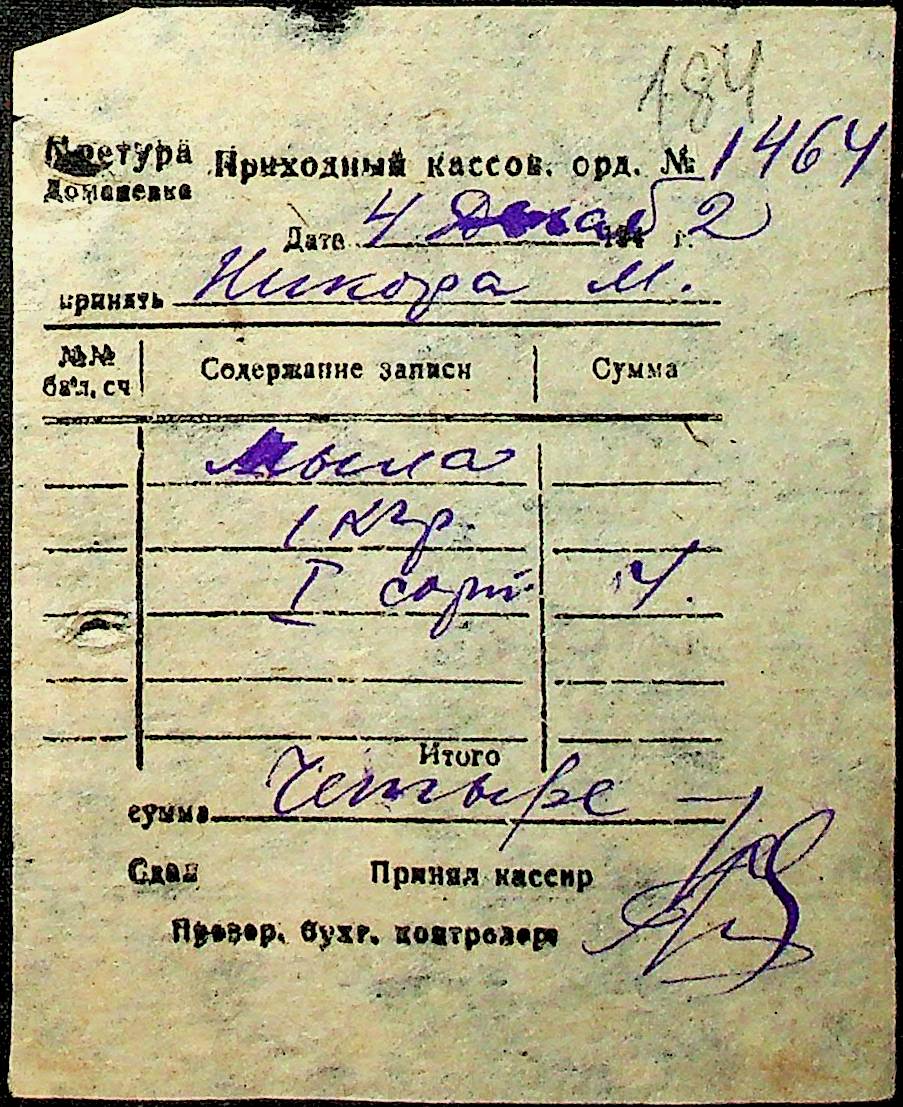 184
Претура Приходный кассов. орд. № 1464
Доманевка
Дата 4 Декаб 194 г. 2
принять Никора М.
№№ бал. сч Содержание записи Сумма
Мыла
1 кгр.
I сорт 4.
Итого
сумма Четыре —
Сдал Принял кассир
Провер. бухг. контролер